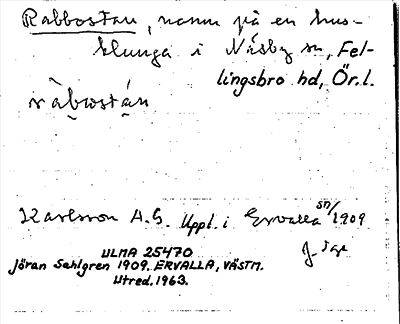 Rabbostan, namn på en hus-
klunga i Näsby sn, Fel-
lingsbro hd, Ör. l.
ràbωstán
Karlsson A.G. Uppl. i Ervalla sn/1909
ULMA 25470
Jöran Sahlgren 1909. ERVALLA, VÄSTM.
Utred. 1963.